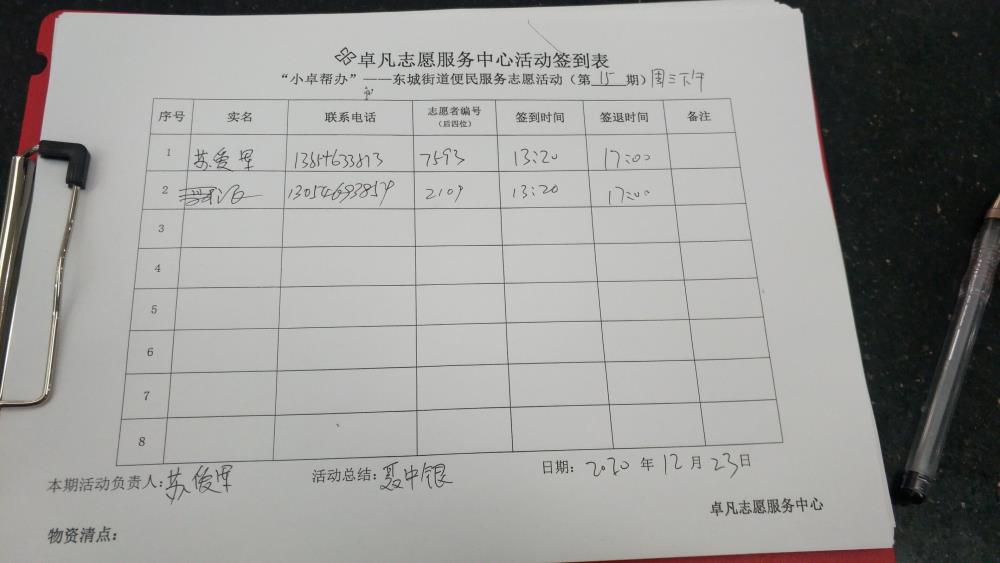 卓凡志愿服务中心活动签到表
“小卓帮办”——东城街道便民服务志愿活动(第 15 期)周三下午
序号 实名 联系电话 志愿者编号(后四位) 签到时间 签退时间 备注
1 苏爱军 13854633873 7593 13:20 17:00
2 13054693859 2109 13:20 17:00
3
4
5
6
7
8
本期活动负责人:苏爱军 活动总结:聂中银 日期:2020 年 12 月 23 日
卓凡志愿服务中心
物资清点: